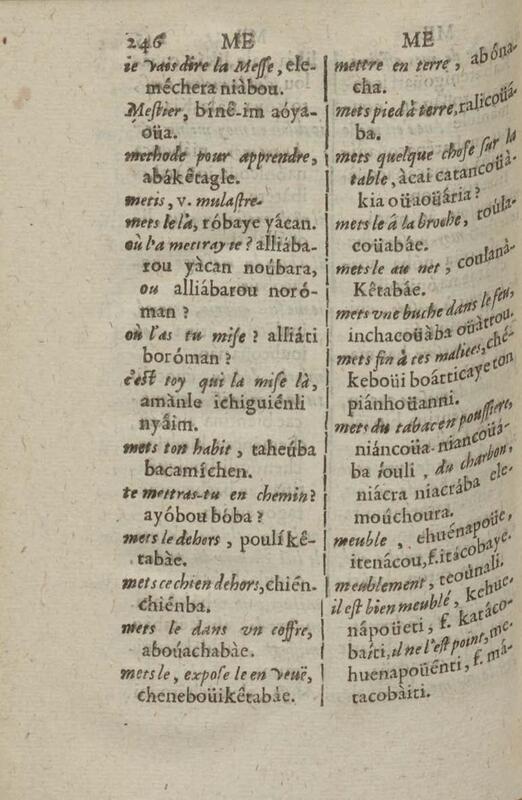 246 ME ME
ie vais dire la Messe, ele-
méchera niàbou.
Mestier, binê-im aóya-
oüa.
methode pour apprendre,
abákêtagle.
metis, v. mulastre.
mets le là, róbaye yácan.
où l'a mettray te? alliába-
rou yàcan noúbara,
ou alliábarou noró-
man?
où l'as tu mise? alliáti
boróman?
c'est toy qui la mise là,
amànle ichiguiénli
nyáim.
mets ton habit, taheúba
bacamíchen.
te mettras-tu en chemin?
ayóbou bóba?
mets le dehors, poulíkê-
tabàe.
mets ce chien dehors, chién-
chiénba.
mets le dans vn coffre,
aboúachabàe.
mets le, expose le en veuë,
cheneboüikêtabáe.
mettre en terre, abóna-
cha.
mets pied à terre, ralicoüá-
ba.
mets quelque chose sur la
table, àcai catancoüà-
kia oüaoüária?
mets le á la broche, toúla-
coüabáe.
mets le au net, coulanà-
Kêtabáe.
mets vne buche dans le feu,
inchacoüàba oüàttou.
mets fin à tes malices, ché-
keboüi boátticaye ton
piánhoüanni.
mets du tabac en poussiere,
niáncoüa-niancoüá-
ba iouli, du charbon,
niácra niacrába ele-
moúchoura.
meuble, ehuénapoüe,
itenácou, f. itácobaye.
meublement, teoúnali.
il est bien meublé, kehue-
nápoüeti, f. katáco-
baíti, il ne l'est point, me-
huenapoüénti, f. má-
tacobàiti.